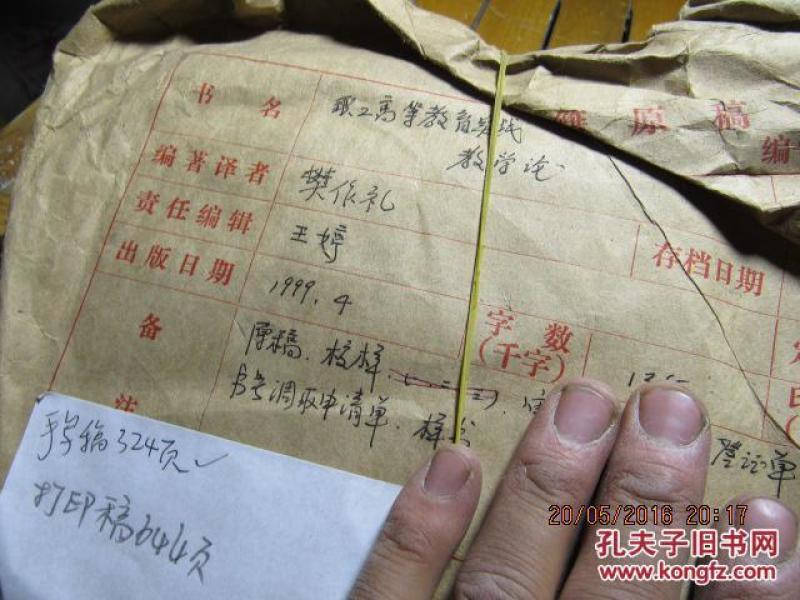 原稿
编
书名
职工高等教育实践
教学论
编著译者
樊作礼
责任编辑
王婷
存档日期
出版日期
1999.4
字数
(千字)
备
注
原稿、校样、
书号调取申请单、样书
登记单
手写稿324页✓
打印稿644页
20/05/2016 20:17
孔夫子旧书网
www.kongfz.com